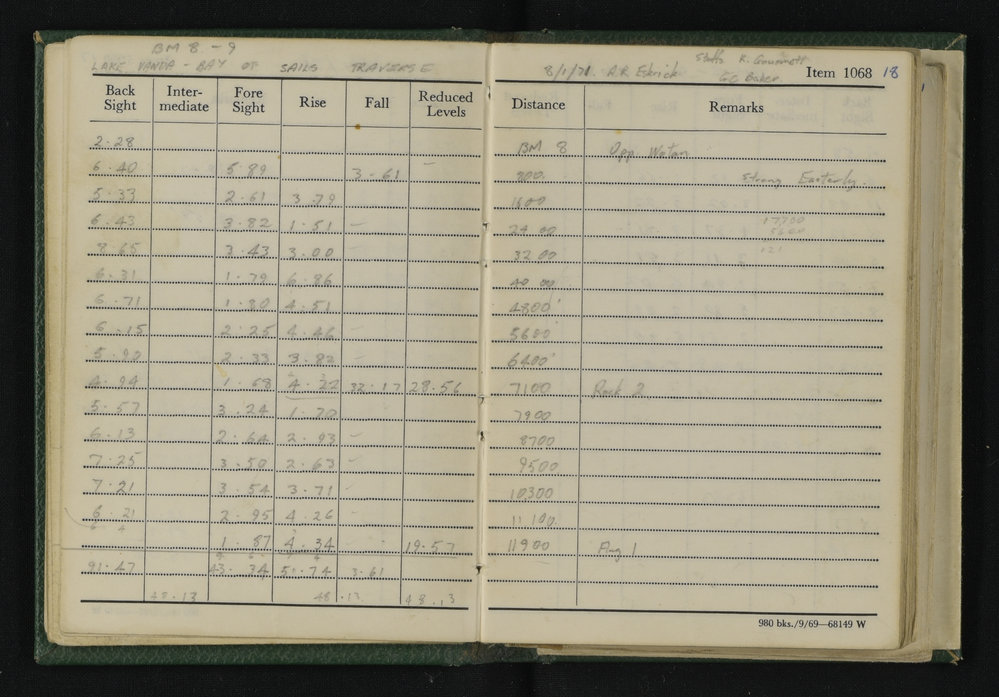 BM 8 - 9
LAKE VANDA - BAY OF SAILS TRAVERSE
8/1/71. A.R. Staffs K.
G.C Baker Item 1068 18
Back Sight Inter-mediate Fore Sight Rise Fall Reduced Levels Distance Remarks
2.28 BM 8 Opp.
6.40 5.89 3-61 - 800 Strong Easterly.
5.33 2.61 3.79 1600
6.43 3.82 1.51 - 24 00 17700
5600
8.65 3.43 3.00 - 32 00 121
6.31 1.79 6.86 40 00
6.71 1.80 4.51 4800'
6.15 2.25 4.46 - 5600'
5.90 2.33 3.82 - 6400'
4.94 1.68 4.22 32.17 28.56 7100 Rock 2
5.57 3.24 1.70 7900
6.13 2.64 2.93 - 8700
7.25 3.50 2.63 - 9500
7.21 3.54 3.71 - 10300
6.21 2.95 4.26 - 11 100
1.87 4.34 - 19.57 11900 Flag 1
91.47 43.34 51.74 3.61
48.13 48.13 48.13
980 bks./9/69—68149 W